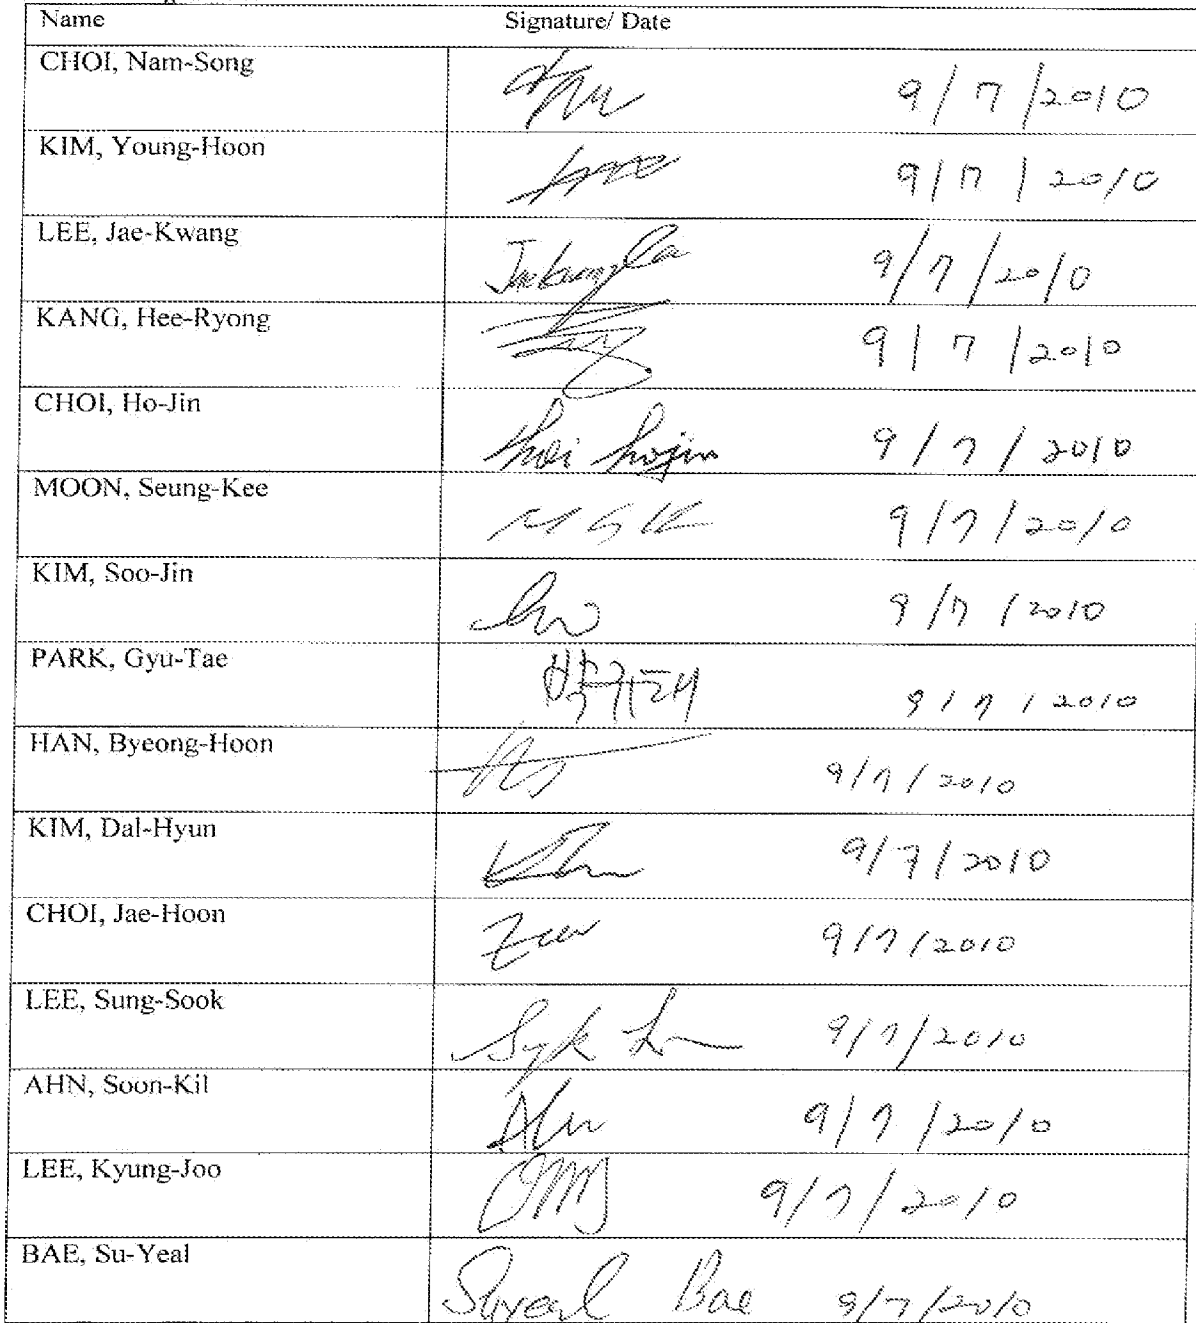 Name Signature/ Date
CHOI, Nam-Song 9/7/2010
KIM, Young-Hoon 9/7/2010
LEE, Jae-Kwang 9/7/2010
KANG, Hee-Ryong 9/7/2010
CHOI, Ho-Jin Choi hojin 9/7/2010
MOON, Seung-Kee MSK 9/7/2010
KIM, Soo-Jin 9/7/2010
PARK, Gyu-Tae 박규태 9/7/2010
HAN, Byeong-Hoon 9/7/2010
KIM, Dal-Hyun 9/7/2010
CHOI, Jae-Hoon 9/7/2010
LEE, Sung-Sook 9/7/2010
AHN, Soon-Kil Ahn 9/7/2010
LEE, Kyung-Joo 9/7/2010
BAE, Su-Yeal Suyeal Bae 9/7/2010